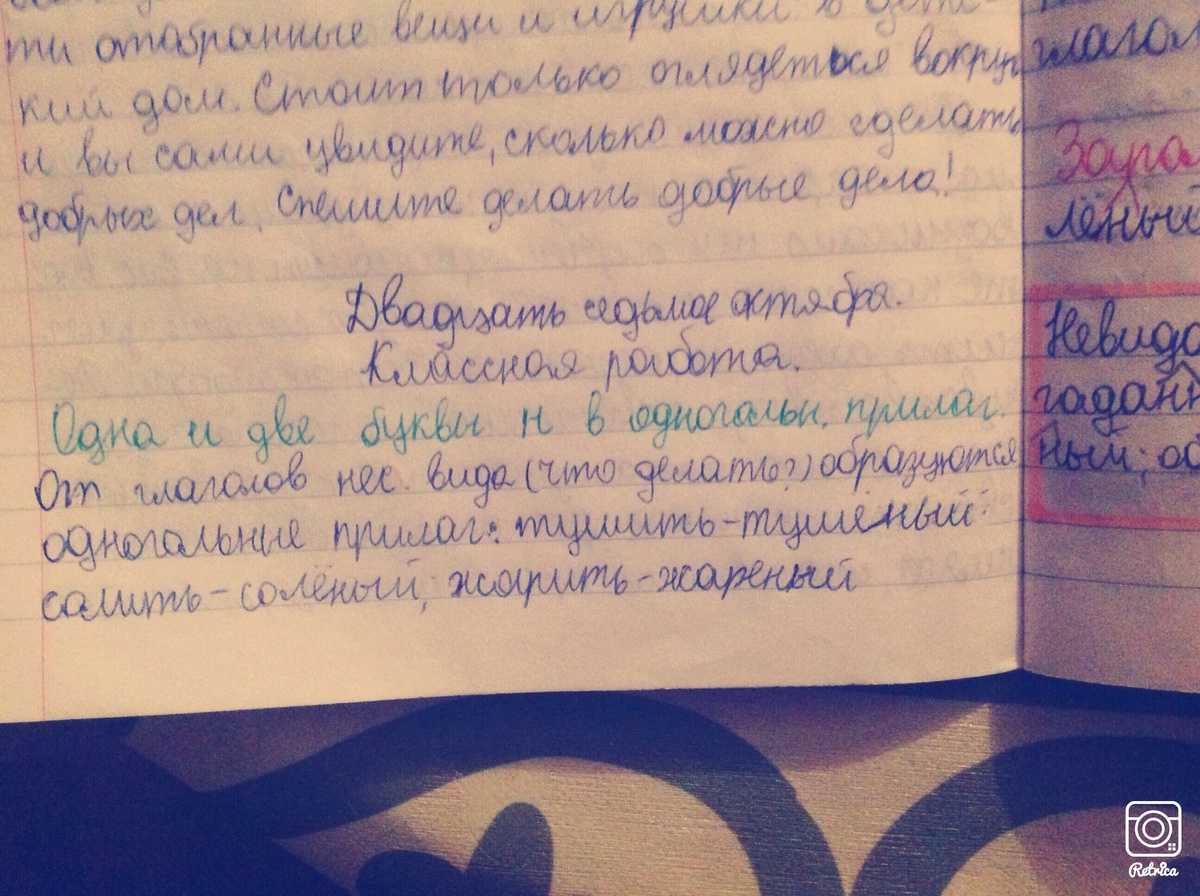 ти отобранные вещи и игрушки в детс-
кий дом. Стоит только оглядеться вокруг
и вы сами увидите, сколько можно сделать
добрых дел. Спешите делать добрые дела!
Двадцать седьмое октября.
Классная работа.
Одна и две буквы н в одногольн. прилаг.
От глаголов нес. вида (что делать?) образуются
одногольные прилаг.: тушить-тушёный;
солить-солёный; жарить-жареный
глагол
Заура
лёный
Невида
гаданн
ный; об
Retrica